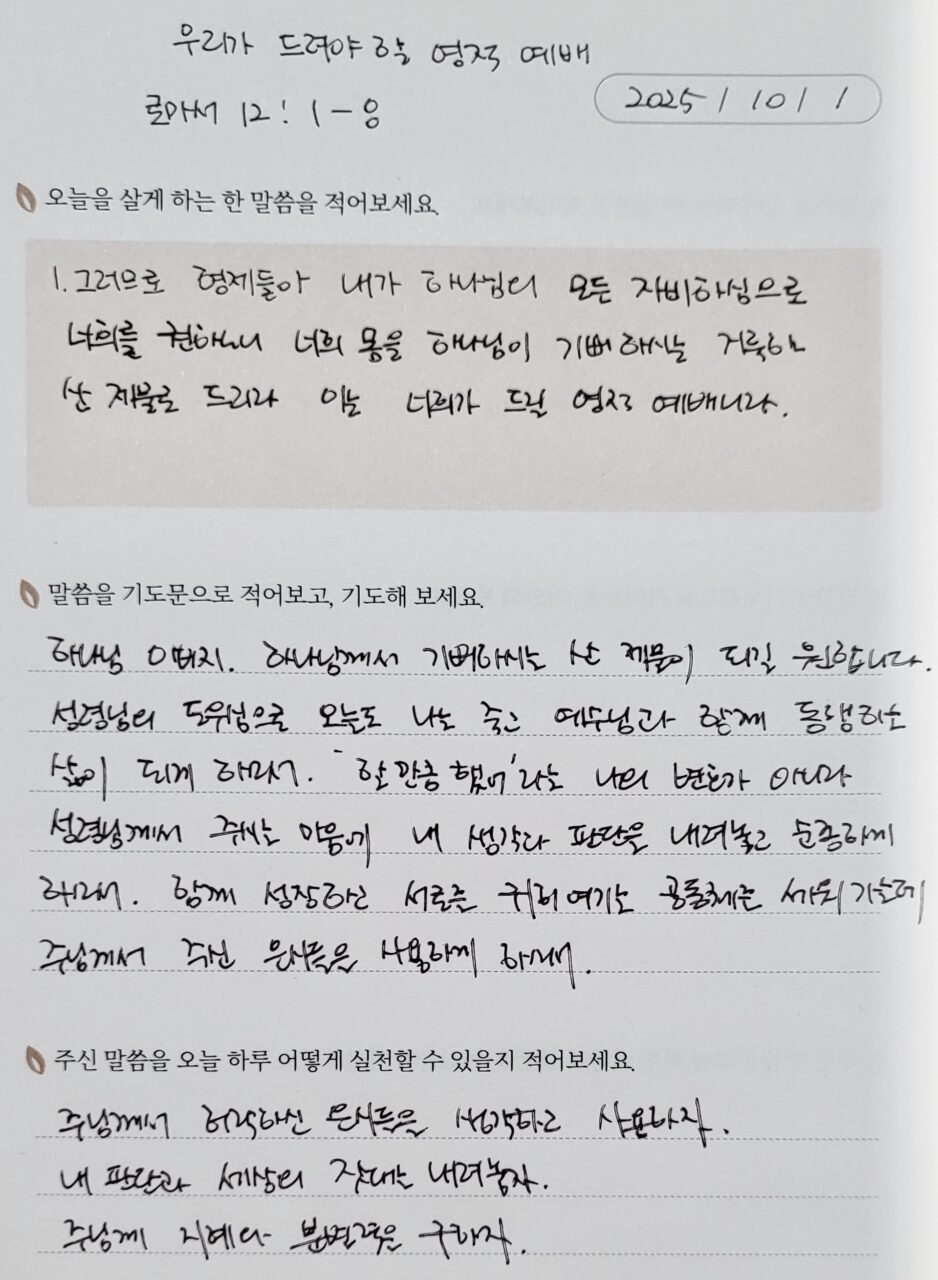 우리가 드려야 할 영적 예배
로마서 12 : 1 - 8
2025 / 10 / 1
오늘을 살게 하는 한 말씀을 적어보세요.
1. 그러므로 형제들아 내가 하나님의 모든 자비하심으로
너희를 권하노니 너희 몸을 하나님이 기뻐하시는 거룩한
산 제물로 드리라 이는 너희가 드릴 영적 예배니라.
말씀을 기도문으로 적어보고, 기도해 보세요.
하나님 아버지. 하나님께서 기뻐하시는 산 제물이 되길 원합니다.
성령님의 도우심으로 오늘도 나는 죽고 예수님과 함께 동행하는
삶이 되게 하소서. '할 만큼 했어'라는 나의 변호가 아니라
성령님께서 주시는 마음에 내 생각과 판단을 내려놓고 순종하게
하소서. 함께 성장하고 서로를 귀히 여기는 공동체를 세워가는데
주님께서 주신 은사들을 사용하게 하소서.
주신 말씀을 오늘 하루 어떻게 실천할 수 있을지 적어보세요.
주님께서 허락하신 은사들을 생각하고 사용하자.
내 판단과 세상의 잣대는 내려놓자.
주님께 지혜와 분별력을 구하자.